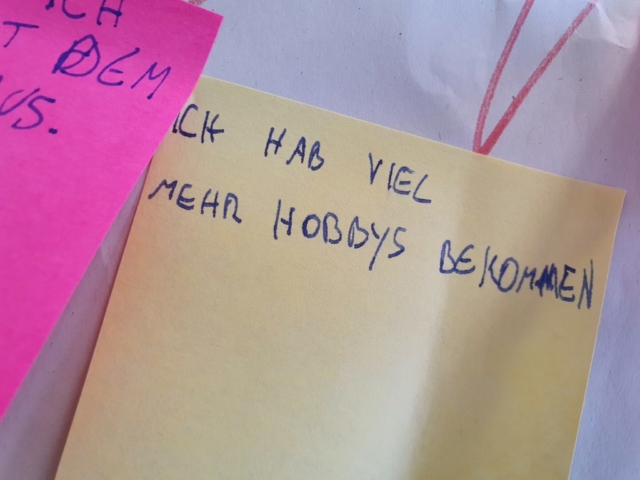 ICH
T DEM
US.
ICH HAB VIEL
MEHR HOBBYS BEKOMMEN